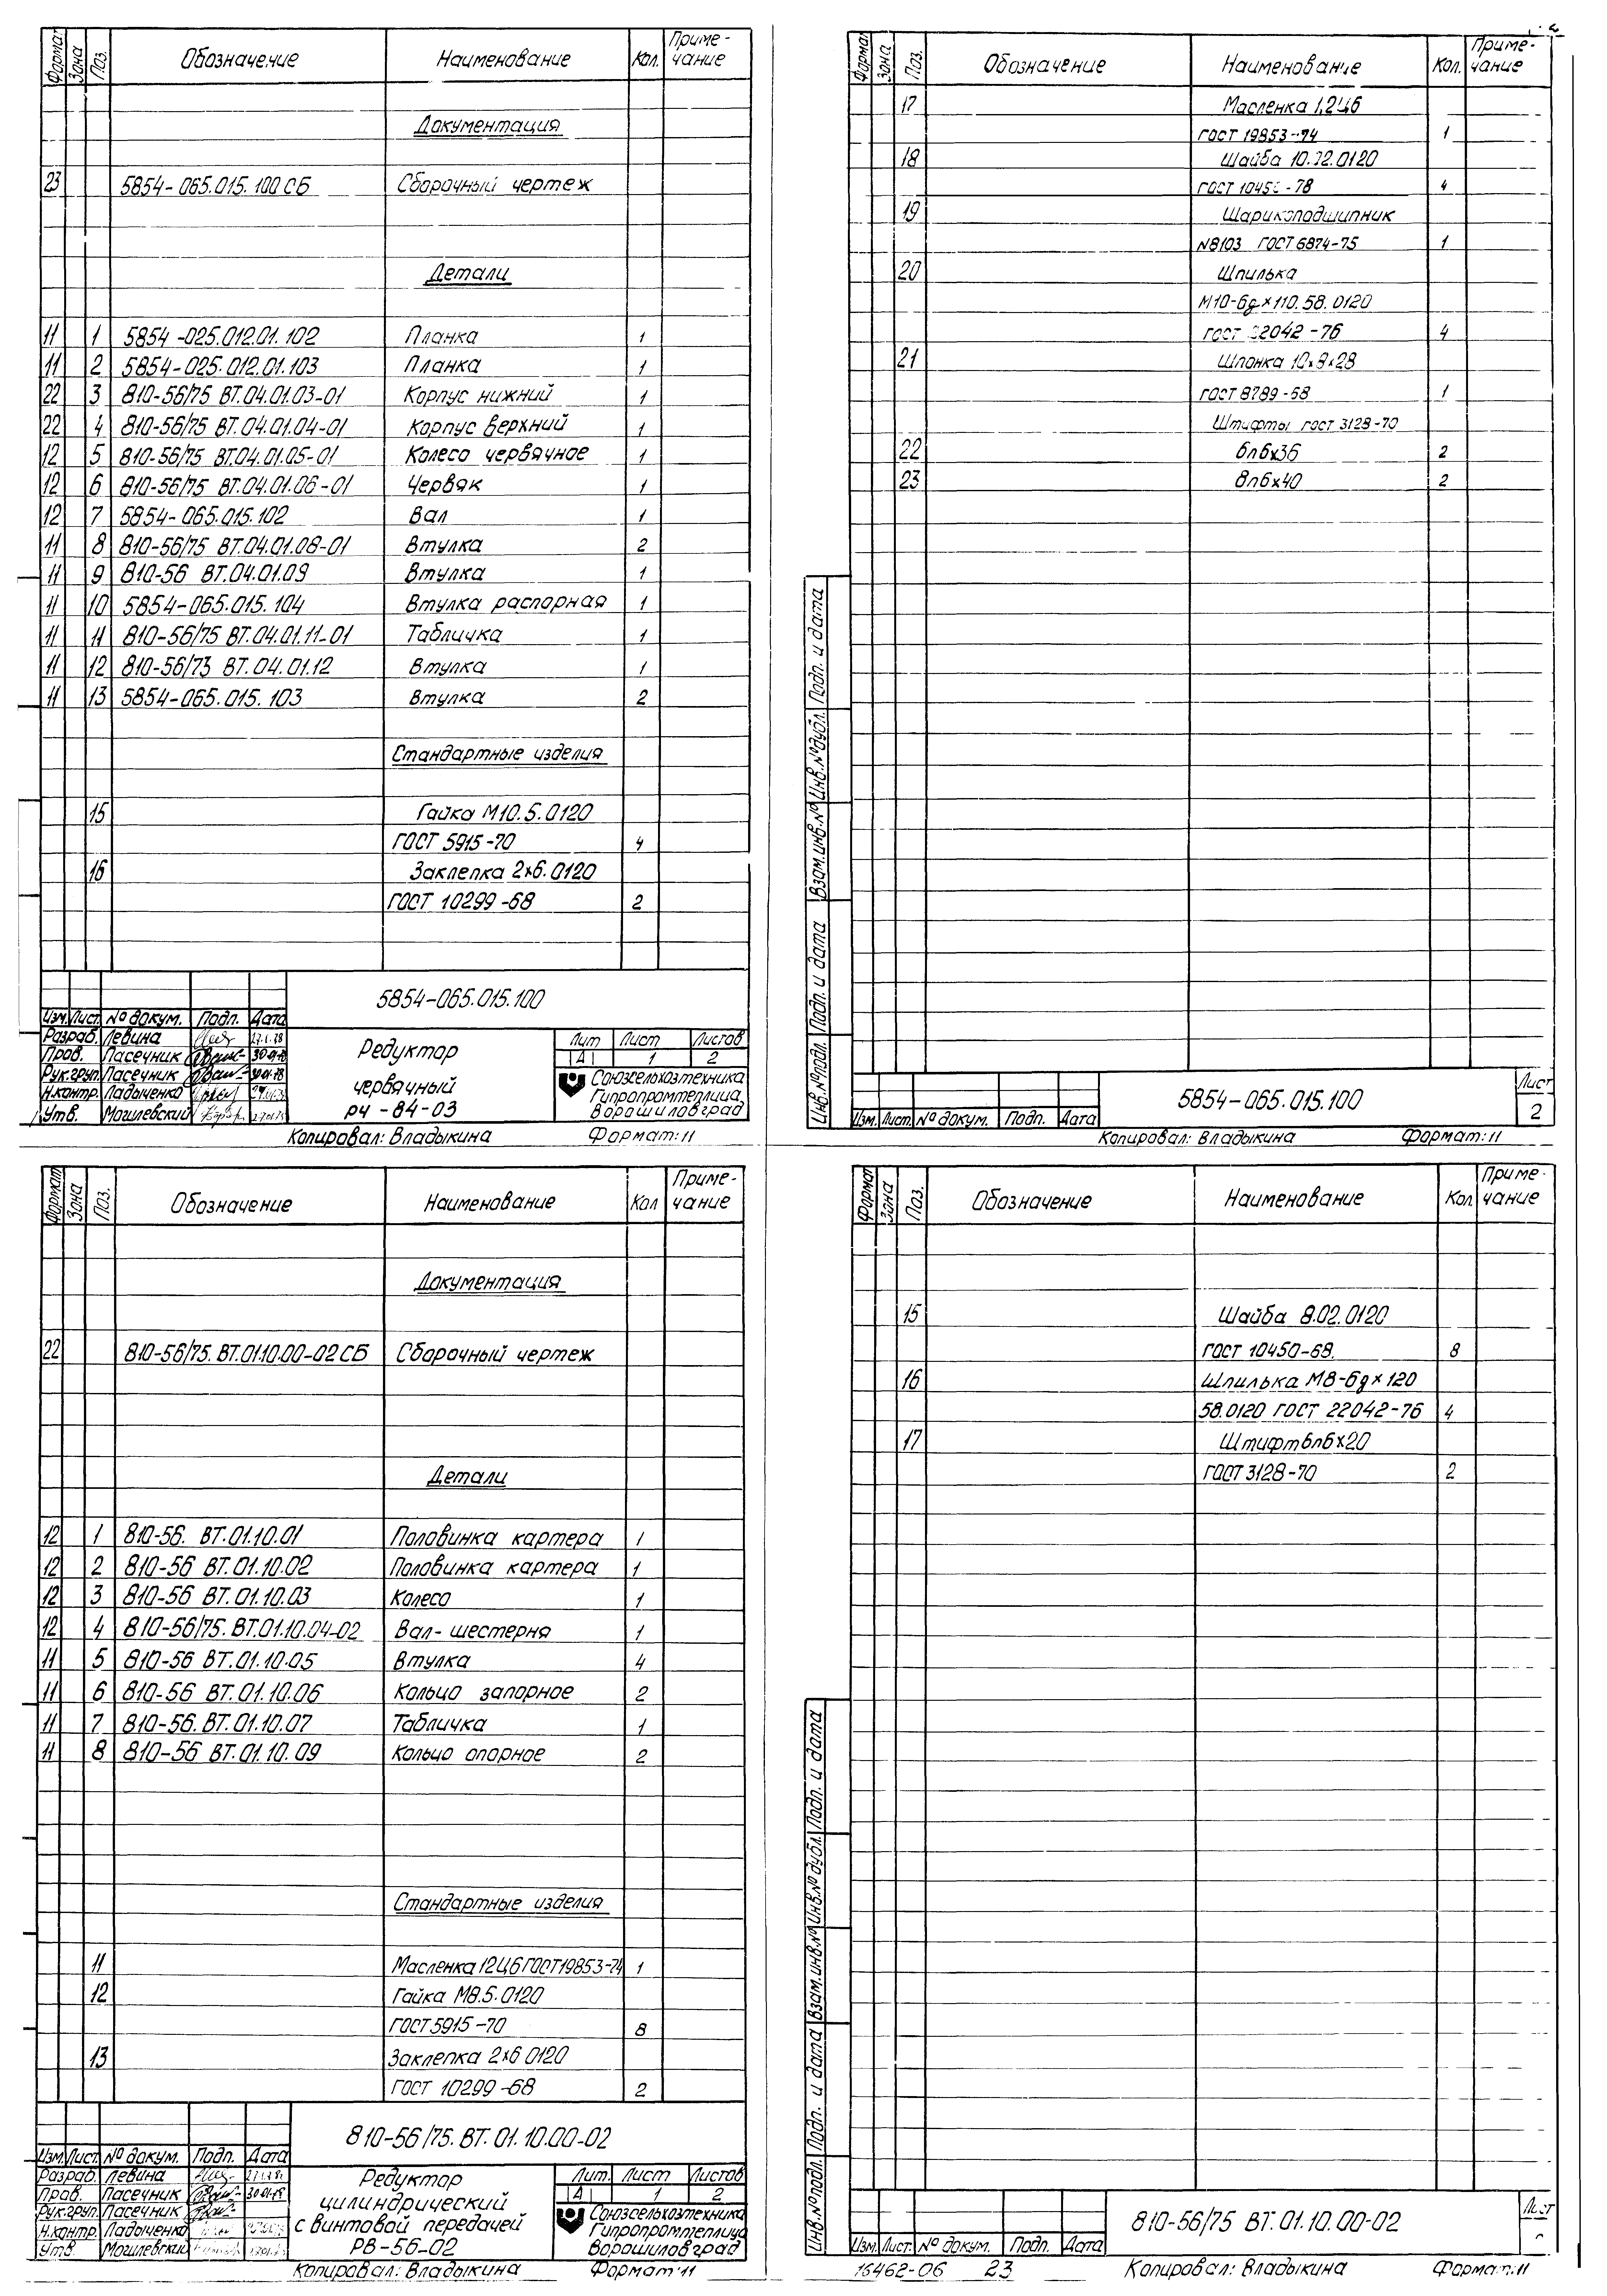 Формат Зона Поз. Обозначение Наименование Кол. Приме-чание
Документация
23 5854-065.015.100 СБ Сборочный чертеж
Детали
11 1 5854-025.012.01.102 Планка 1
11 2 5854-025.012.01.103 Планка 1
22 3 810-56/75 ВТ.04.01.03-01 Корпус нижний 1
22 4 810-56/75 ВТ.04.01.04-01 Корпус верхний 1
12 5 810-56/75 ВТ.04.01.05-01 Колесо червячное 1
12 6 810-56/75 ВТ.04.01.06-01 Червяк 1
12 7 5854-065.015.102 Вал 1
11 8 810-56/75 ВТ.04.01.08-01 Втулка 2
11 9 810-56 ВТ.04.01.09 Втулка 1
11 10 5854-065.015.104 Втулка распорная 1
11 11 810-56/75 ВТ.04.01.11-01 Табличка 1
11 12 810-56/73 ВТ.04.01.12 Втулка 1
11 13 5854-065.015.103 Втулка 2
Стандартные изделия
15 Гайка М10.5.0120
ГОСТ 5915-70 4
16 Заклепка 2х6.0120
ГОСТ 10299-68 2
5854-065.015.100
Изм. Лист № докум. Подп. Дата
Разраб. Левина
Пров. Пасечник
Рук.груп. Пасечник
Н.контр. Ладыченко
Утв. Могилевский
Редуктор
червячный
РЧ-84-03
Лит Лист Листов
А 1 2
Союзсельхозтехника
Гипропромтеплица
Ворошиловград
Копировал: Владыкина Формат: 11
Формат Зона Поз. Обозначение Наименование Кол. Приме-чание
17 Масленка 1.2Ц6
ГОСТ 19853-74 1
18 Шайба 10.02.0120
ГОСТ 1045 -78 4
19 Шарикоподшипник
N8103 ГОСТ 6874-75 1
20 Шпилька
М10-6g×110.58.0120
ГОСТ 22042-76 4
21 Шпонка 10×8×28
ГОСТ 8789-68 1
Штифты ГОСТ 3128-70
22 6п6х36 2
23 8п6х40 2
Инв.№подл. Подп. и дата Взам.инв.№ Инв.№дубл. Подп. и дата
5854-065.015.100
Лист
2
Изм. Лист. № докум. Подп. Дата
Копировал: Владыкина Формат: 11
Формат Зона Поз. Обозначение Наименование Кол Приме-чание
Документация
22 810-56/75. ВТ.01.10.00-02 СБ Сборочный чертеж
Детали
12 1 810-56. ВТ.01.10.01 Половинка картера 1
12 2 810-56 ВТ.01.10.02 Половинка картера 1
12 3 810-56 ВТ.01.10.03 Колесо 1
12 4 810-56/75. ВТ.01.10.04-02 Вал-шестерня 1
11 5 810-56 ВТ.01.10.05 Втулка 4
11 6 810-56 ВТ.01.10.06 Кольцо запорное 2
11 7 810-56. ВТ.01.10.07 Табличка 1
11 8 810-56 ВТ.01.10.09 Кольцо опорное 2
Стандартные изделия
11 Масленка 12Ц6 ГОСТ19853-74 1
12 Гайка М8.5.0120
ГОСТ 5915-70 8
13 Заклепка 2х6 0120
ГОСТ 10299-68 2
810-56/75. ВТ. 01.10.00-02
Изм. Лист. № докум. Подп. Дата
Разраб. Левина
Пров. Пасечник
Рук.груп. Пасечник
Н.контр. Ладыченко
Утв. Могилевский
Редуктор
цилиндрический
с винтовой передачей
РВ-56-02
Лит. Лист Листов
А 1 2
Союзсельхозтехника
Гипропромтеплица
Ворошиловград
Копировал: Владыкина Формат 11
Формат Зона Поз. Обозначение Наименование Кол. Приме-чание
15 Шайба 8.02.0120
ГОСТ 10450-68. 8
16 Шпилька М8-6g×120
58.0120 ГОСТ 22042-76 4
17 Штифт 6п6х20
ГОСТ 3128-70 2
Инв.№подл. Подп. и дата Взам.инв.№ Инв.№дубл. Подп. и дата
810-56/75 ВТ.01.10.00-02
Лист
Изм. Лист. № докум. Подп. Дата
16462-06 23 Копировал: Владыкина Формат: 11